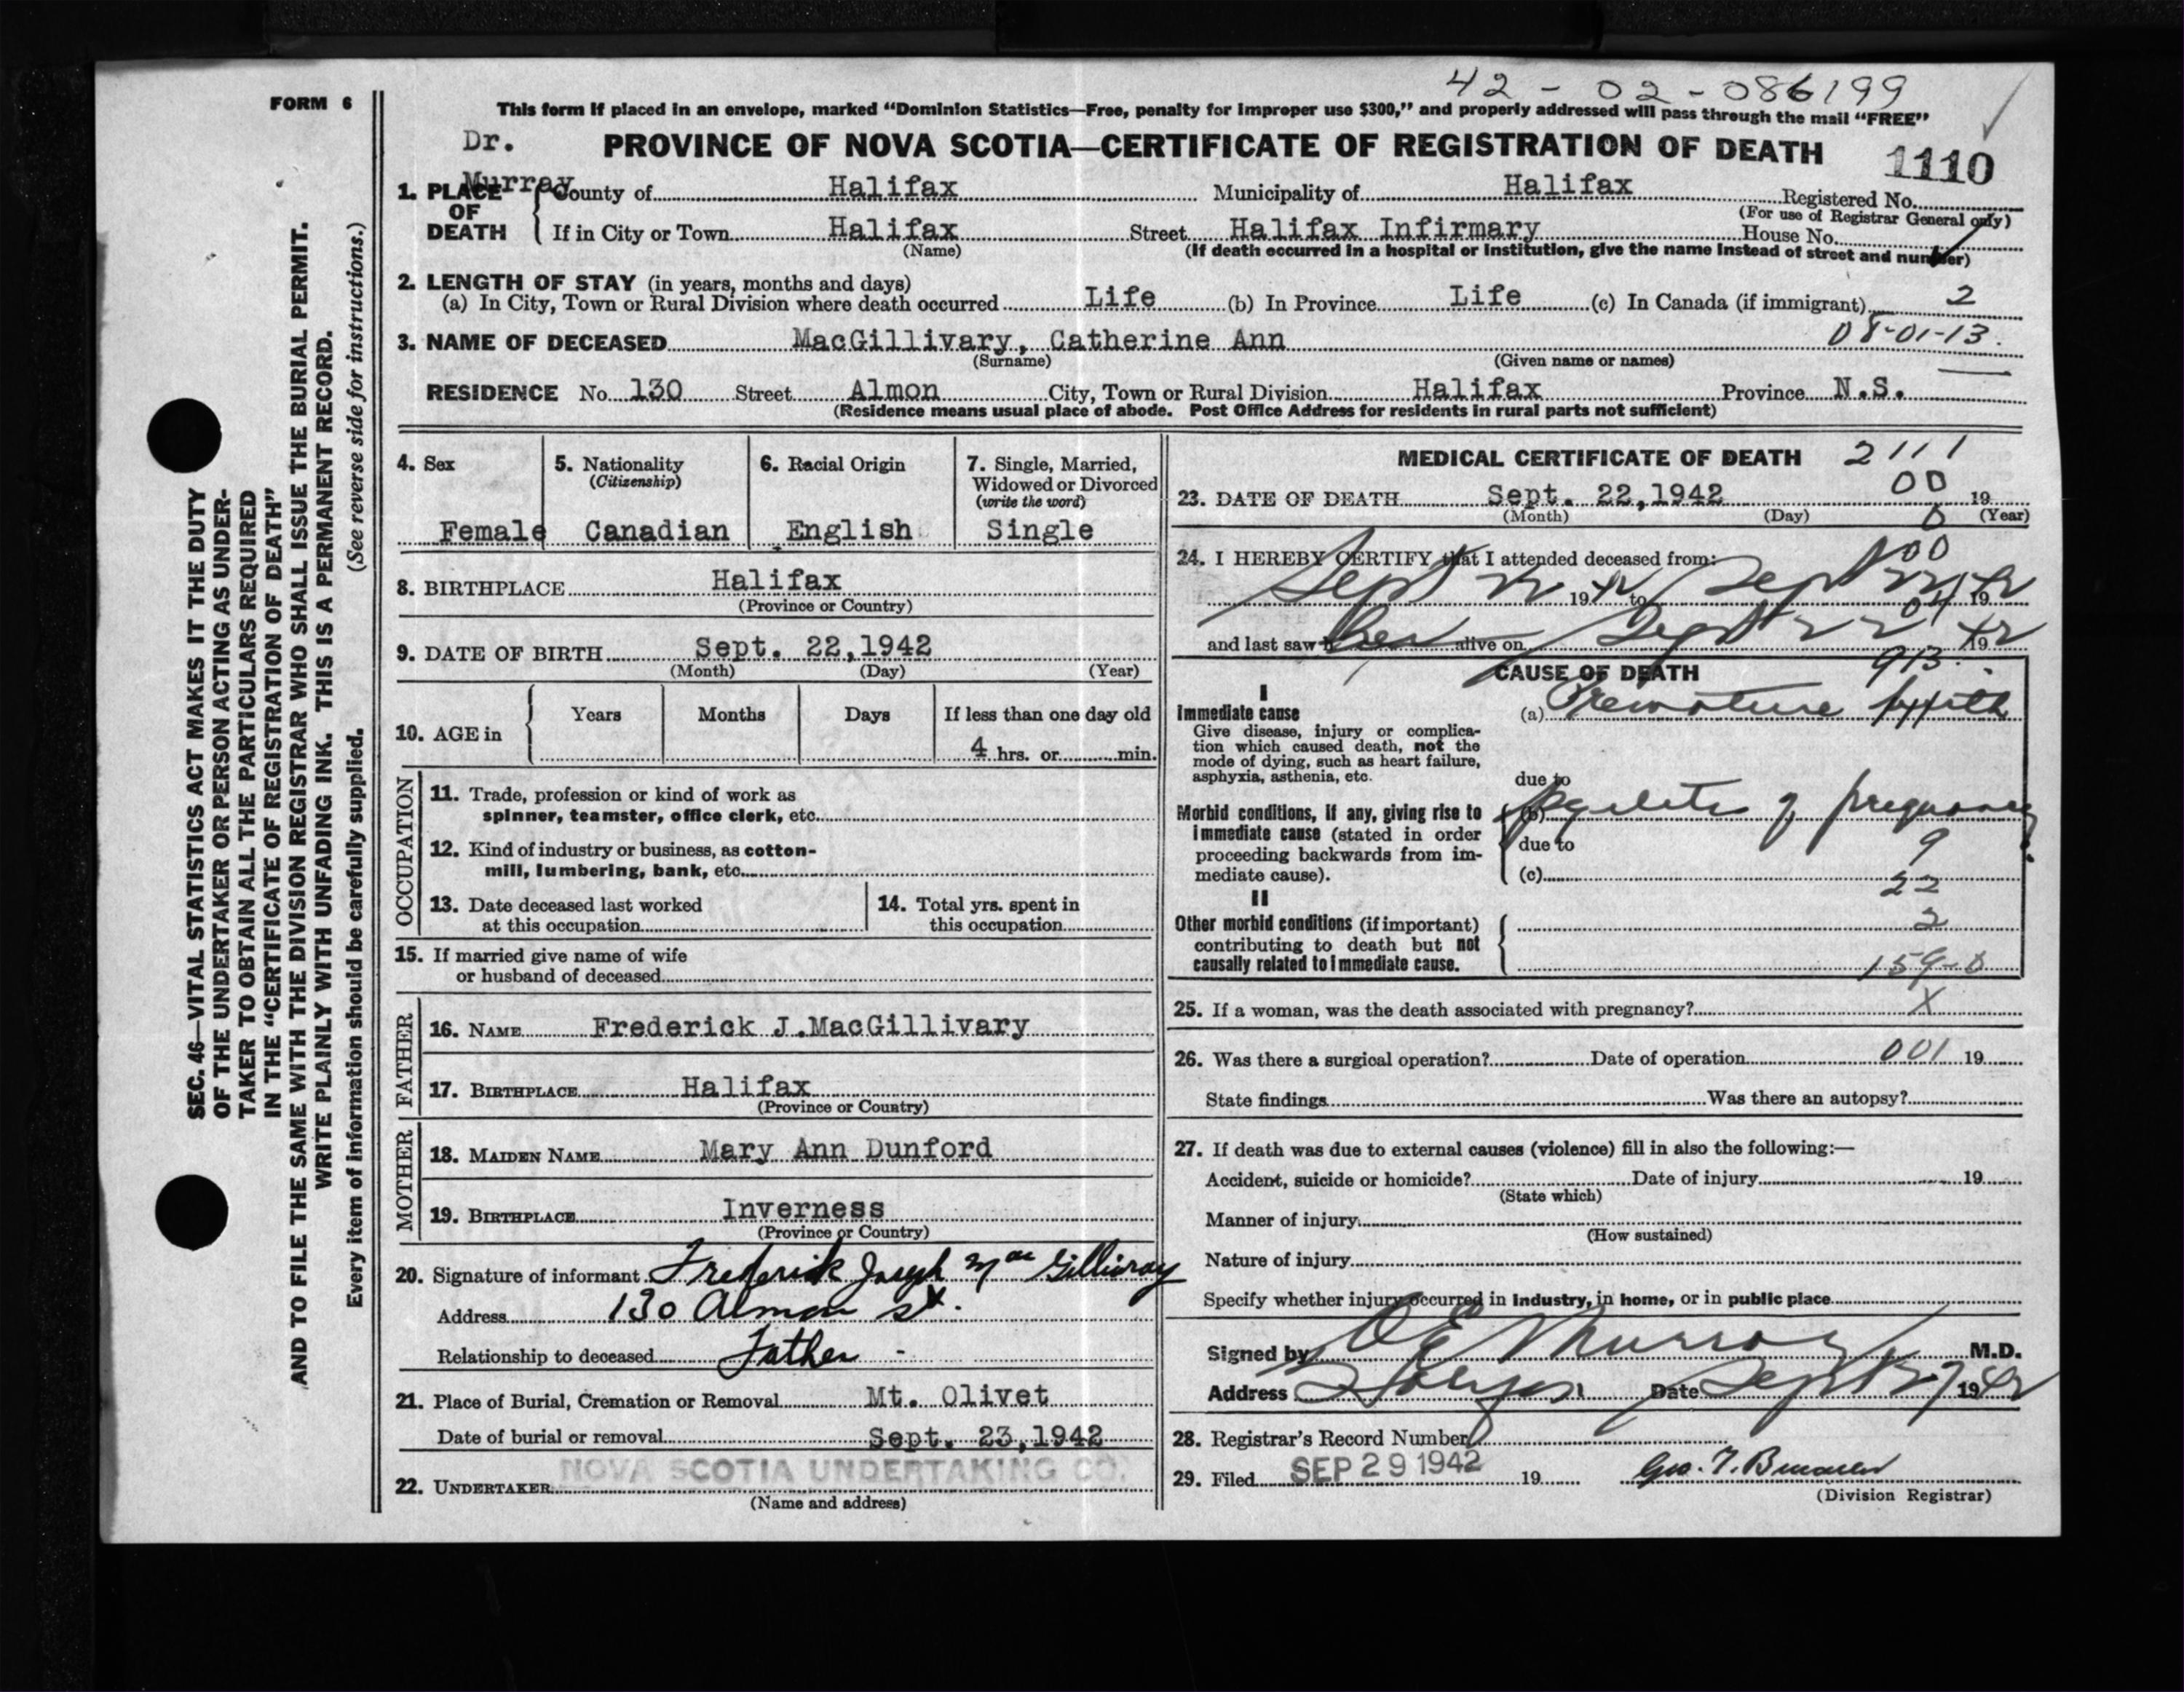 42 - 02 - 086199
FORM 6
This form if placed in an envelope, marked “Dominion Statistics—Free, penalty for improper use $300,” and properly addressed will pass through the mail “FREE”
Dr. Murray
PROVINCE OF NOVA SCOTIA—CERTIFICATE OF REGISTRATION OF DEATH
1110
1. PLACE OF DEATH
County of Halifax Municipality of Halifax Registered No.
(For use of Registrar General only)
If in City or Town Halifax Street Halifax Infirmary House No.
(Name) (If death occurred in a hospital or institution, give the name instead of street and number)
2. LENGTH OF STAY (in years, months and days)
(a) In City, Town or Rural Division where death occurred Life (b) In Province Life (c) In Canada (if immigrant) 2
3. NAME OF DECEASED MacGillivary, Catherine Ann 08-01-13.
(Surname) (Given name or names)
RESIDENCE No. 130 Street Almon City, Town or Rural Division Halifax Province N.S.
(Residence means usual place of abode. Post Office Address for residents in rural parts not sufficient)
4. Sex
Female
5. Nationality
(Citizenship)
Canadian
6. Racial Origin
English
7. Single, Married,
Widowed or Divorced
(write the word)
Single
8. BIRTHPLACE Halifax
(Province or Country)
9. DATE OF BIRTH Sept. 22,1942
(Month) (Day) (Year)
10. AGE in
Years Months Days If less than one day old
4 hrs. or min.
OCCUPATION
11. Trade, profession or kind of work as
spinner, teamster, office clerk, etc.
12. Kind of industry or business, as cotton-
mill, lumbering, bank, etc.
13. Date deceased last worked
at this occupation
14. Total yrs. spent in
this occupation
15. If married give name of wife
or husband of deceased
FATHER
16. NAME Frederick J.MacGillivary
17. BIRTHPLACE Halifax
(Province or Country)
MOTHER
18. MAIDEN NAME Mary Ann Dunford
19. BIRTHPLACE Inverness
(Province or Country)
20. Signature of informant Frederick Joseph MacGillivray
Address 130 Almon St.
Relationship to deceased Father -
21. Place of Burial, Cremation or Removal Mt. Olivet
Date of burial or removal Sept. 23,1942
22. UNDERTAKER NOVA SCOTIA UNDERTAKING CO.
(Name and address)
MEDICAL CERTIFICATE OF DEATH 2111
23. DATE OF DEATH Sept. 22,1942 00 19
(Month) (Day) 0 (Year)
24. I HEREBY CERTIFY that I attended deceased from: 100
Sept 22 1942 to Sept 22 1942
04
and last saw her alive on Sept 22 1942
913.
CAUSE OF DEATH
I
Immediate cause
Give disease, injury or complica-
tion which caused death, not the
mode of dying, such as heart failure,
asphyxia, asthenia, etc.
(a) Premature birth
due to
Morbid conditions, if any, giving rise to
immediate cause (stated in order
proceeding backwards from im-
mediate cause).
(b) pyelitis of pregnancy
due to 9
(c)
22
II
Other morbid conditions (if important)
contributing to death but not
causally related to immediate cause.
2
159-0
25. If a woman, was the death associated with pregnancy? X
26. Was there a surgical operation? Date of operation 001 19
State findings Was there an autopsy?
27. If death was due to external causes (violence) fill in also the following:—
Accident, suicide or homicide? Date of injury 19
(State which)
Manner of injury
(How sustained)
Nature of injury
Specify whether injury occurred in industry, in home, or in public place
Signed by Murray M.D.
Address Halifax Date Sept 27 1942
28. Registrar's Record Number
29. Filed SEP 29 1942 19
(Division Registrar)
SEC. 46—VITAL STATISTICS ACT MAKES IT THE DUTY
OF THE UNDERTAKER OR PERSON ACTING AS UNDER-
TAKER TO OBTAIN ALL THE PARTICULARS REQUIRED
IN THE “CERTIFICATE OF REGISTRATION OF DEATH”
AND TO FILE THE SAME WITH THE DIVISION REGISTRAR WHO SHALL ISSUE THE BURIAL PERMIT.
WRITE PLAINLY WITH UNFADING INK. THIS IS A PERMANENT RECORD.
Every item of information should be carefully supplied. (See reverse side for instructions.)